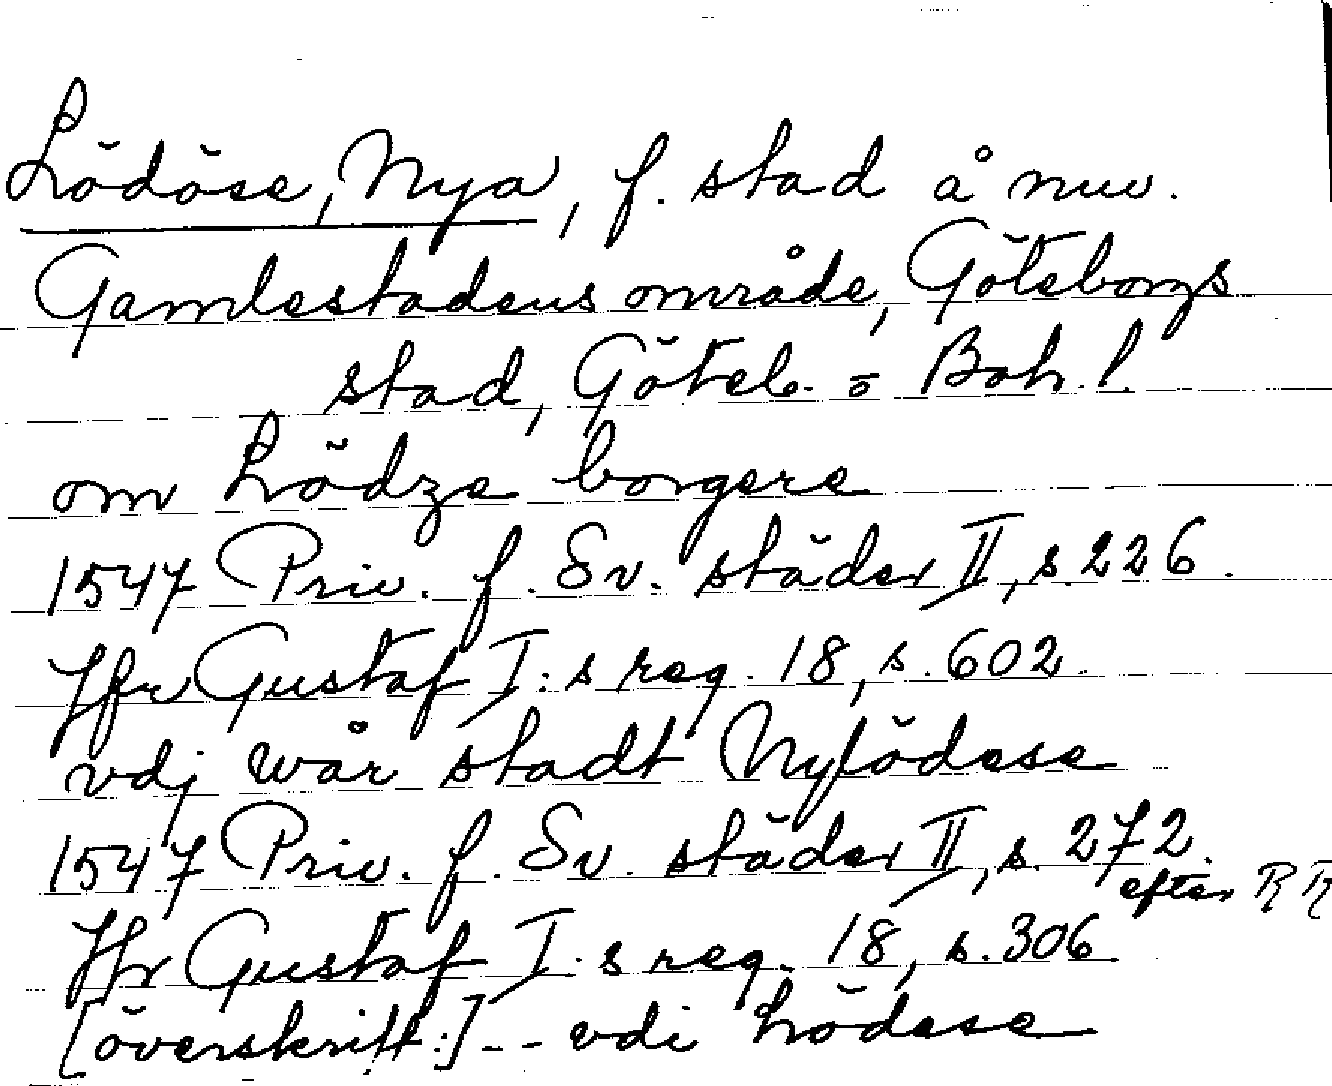 Lödöse, Nya, f. stad å nuv.
Gamlestadens område, Göteborgs
stad, Göteb. o Boh. l.
om Lödze borgere
1547 Priv. f. Sv. städer II, s. 226.
Jfr Gustaf I:s reg. 18, s. 602.
vdj wår stadt Nylödese
1547 Priv. f. Sv. städer II, s. 272.
efter RR
Jfr Gustaf I.s reg. 18, s. 306.
[överskrift:] -- vdi Lödese